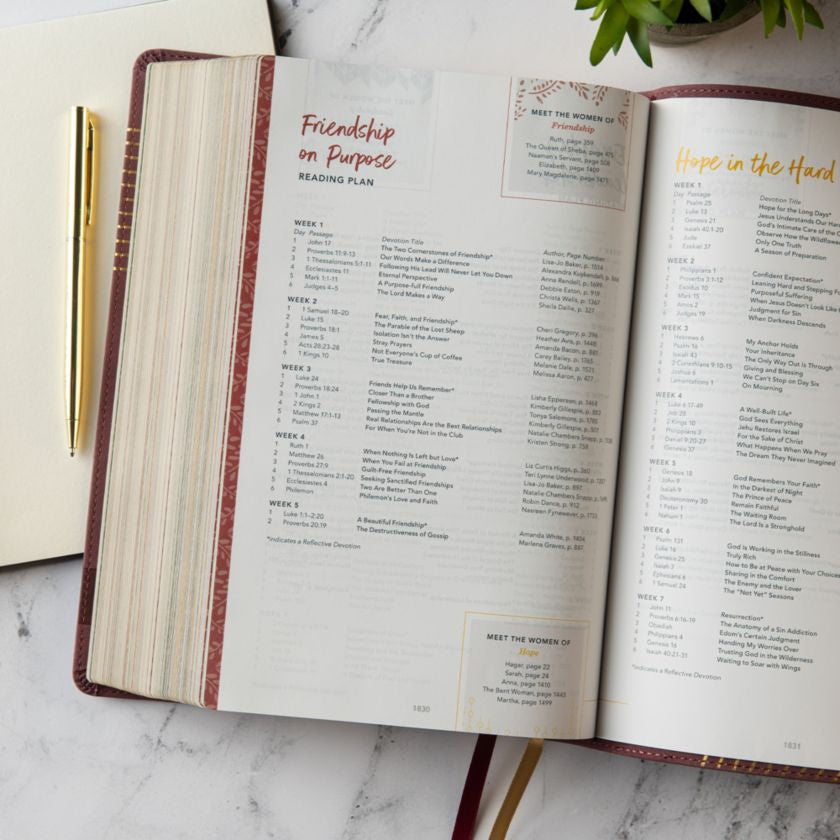 Friendship
on Purpose
READING PLAN
MEET THE WOMEN OF
Friendship
Ruth, page 359
The Queen of Sheba, page 475
Naaman's Servant, page 508
Elizabeth, page 1409
Mary Magdalene, page 1471
WEEK 1
Day Passage Devotion Title Author, Page Number
1 John 17 The Two Cornerstones of Friendship* Lisa-Jo Baker, p. 1514
2 Proverbs 11:9-13 Our Words Make a Difference Alexandra Kuykendall, p. 866
3 1 Thessalonians 5:1-11 Following His Lead Will Never Let You Down Anne Rendell, p. 1699
4 Ecclesiastes 11 Eternal Perspective Debbie Eaton, p. 919
5 Mark 1:1-11 A Purpose-full Friendship Christa Wells, p. 1367
6 Judges 4–5 The Lord Makes a Way Sheila Dailie, p. 327
WEEK 2
1 1 Samuel 18–20 Fear, Faith, and Friendship* Cheri Gregory, p. 396
2 Luke 15 The Parable of the Lost Sheep Heather Avis, p. 1448
3 Proverbs 18:1 Isolation Isn't the Answer Amanda Bacon, p. 881
4 James 5 Stray Prayers Carey Bailey, p. 1765
5 Acts 26:23-28 Not Everyone's Cup of Coffee Melanie Dale, p. 1521
6 1 Kings 10 True Treasure Melissa Aaron, p. 477
WEEK 3
1 Luke 24 Friends Help Us Remember* Lisha Epperson, p. 1468
2 Proverbs 18:24 Closer Than a Brother Kimberly Gillespie, p. 883
3 1 John 1 Fellowship with God Tonya Salomons, p. 1785
4 2 Kings 2 Passing the Mantle Kimberly Gillespie, p. 507
5 Matthew 17:1-13 Real Relationships Are the Best Relationships Natalie Chambers Snapp, p.
6 Psalm 37 For When You're Not in the Club Kristen Strong, p. 758
WEEK 4
1 Ruth 1 When Nothing Is Left but Love* Liz Curtis Higgs, p. 360
2 Matthew 26 When You Fail at Friendship Teri Lynne Underwood, p.
3 Proverbs 27:9 Guilt-Free Friendship Lisa-Jo Baker, p. 897
4 1 Thessalonians 2:1-20 Seeking Sanctified Friendships Natalie Chambers Snapp, p.
5 Ecclesiastes 4 Two Are Better Than One Robin Dance, p. 912
6 Philemon Philemon's Love and Faith Nasreen Fynewever, p. 1733
WEEK 5
1 Luke 1:1–2:20 A Beautiful Friendship* Amanda White, p. 1404
2 Proverbs 20:19 The Destructiveness of Gossip Marlena Graves, p. 887
*Indicates a Reflective Devotion
MEET THE WOMEN OF
Hope
Hagar, page 22
Sarah, page 24
Anna, page 1410
The Bent Woman, page 1443
Martha, page 1499
1830
Hope in the Hard
WEEK 1
Day Passage Devotion Title
1 Psalm 25 Hope for the Long Days*
2 Luke 13 Jesus Understands Our
3 Genesis 21 God's Intimate Care of the
4 Isaiah 40:1-20 Observe How the Wildflowers
5 Jude Only One Truth
6 Ezekiel 37 A Season of Preparation
WEEK 2
1 Philippians 1 Confident Expectation*
2 Proverbs 3:1-12 Leaning Hard and Stepping
3 Exodus 10 Purposeful Suffering
4 Mark 15 When Jesus Doesn't Look Like
5 Amos 2 Judgment for Sin
6 Judges 19 When Darkness Descends
WEEK 3
1 Hebrews 6 My Anchor Holds
2 Psalm 16 Your Inheritance
3 Isaiah 43 The Only Way Out Is Through
4 2 Corinthians 9:10-15 Giving and Blessing
5 Joshua 6 We Can't Stop on Day Six
6 Lamentations 1 On Mourning
WEEK 4
1 Luke 6:17-49 A Well-Built Life*
2 Job 28 God Sees Everything
3 2 Kings 10 Jehu Restores Israel
4 Philippians 3 For the Sake of Christ
5 Daniel 9:20-27 What Happens When We Pray
6 Genesis 37 The Dream They Never Imagined
WEEK 5
1 Genesis 18 God Remembers Your Faith*
2 John 9 In the Darkest of Night
3 Isaiah 9 The Prince of Peace
4 Deuteronomy 30 Remain Faithful
5 1 Peter 1 The Waiting Room
6 Nahum 1 The Lord Is a Stronghold
WEEK 6
1 Psalm 131 God Is Working in the Stillness
2 Luke 16 Truly Rich
3 Genesis 25 How to Be at Peace with Your Choices
4 Isaiah 3 Sharing in the Comfort
5 Ephesians 6 The Enemy and the Lover
6 1 Samuel 24 The "Not Yet" Seasons
WEEK 7
1 John 11 Resurrection*
2 Proverbs 6:16-19 The Anatomy of a Sin Addiction
3 Obadiah Edom's Certain Judgment
4 Philippians 4 Handing My Worries Over
5 Genesis 16 Trusting God in the Wilderness
6 Isaiah 40:21-31 Waiting to Soar with Wings
*Indicates a Reflective Devotion
1831